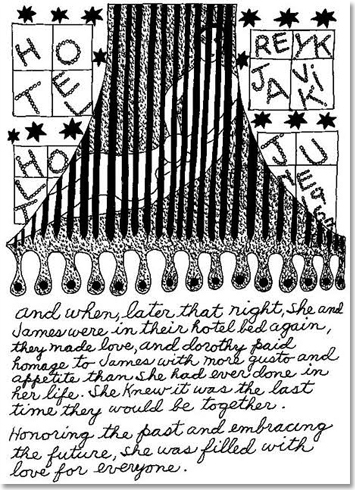 HO
TEL
HO
LT
REYK
JA VIK!
JU
And when, later that night, she and
James were in their hotel bed again,
they made love, and dorothy paid
homage to James with more gusto and
appetite than she had ever done in
her life. She knew it was the last
time they would be together.
Honoring the past and embracing
the future, she was filled with
love for everyone.